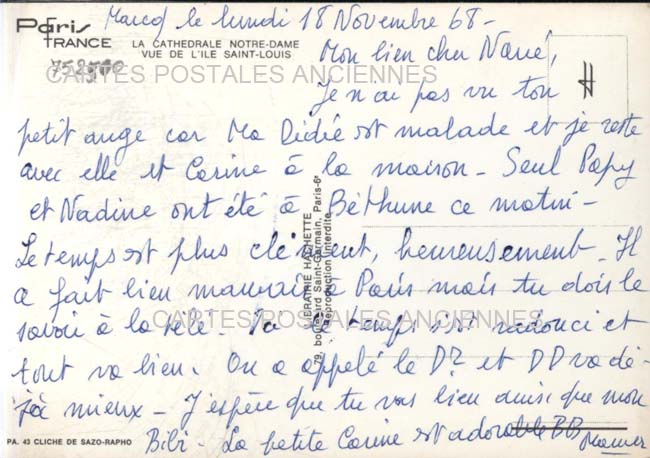 Paris
FRANCE
LA CATHEDRALE NOTRE-DAME
VUE DE L'ILE SAINT-LOUIS
752500
CARTES POSTALES ANCIENNES
le lundi 18 Novembre 68 -
Mon bien cher Nané,
Je n'ai pas vu ton
petit ange car Ma Dédié est malade et je reste
avec elle et Carine à la maison - Seul Papy
et Nadine ont été à Béthune ce matin -
Le temps est plus clément, heureusement - Il
a fait bien mauvais à Paris mais tu dois le
savoir à la télé - Ici le temps s'est radouci et
tout va bien. On a appelé le Dr et DD va dé-
jà mieux - J'espère que tu vas bien ainsi que mon
Bibi - La petite Carine est adorable BB
CARTES POSTALES ANCIENNES
LIBRAIRIE HACHETTE
79, boulevard Saint-Germain, Paris-6e
Reproduction interdite
PA. 43 CLICHE DE SAZO-RAPHO